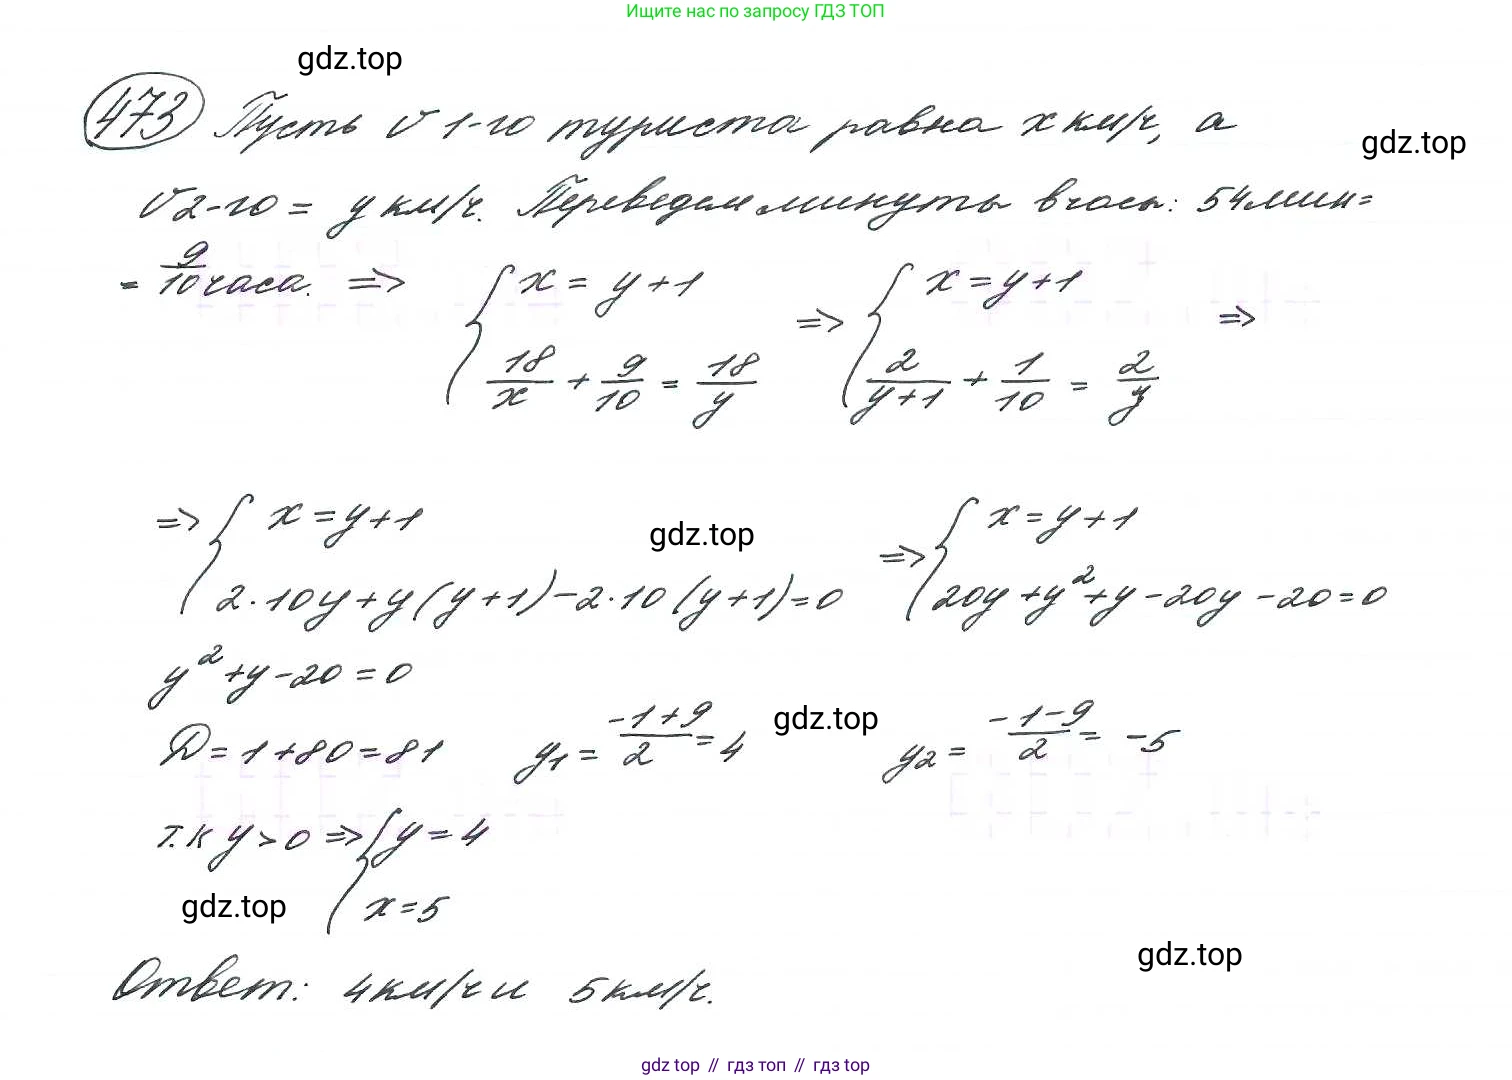 Ищите нас по запросу ГДЗ ТОП
gdz.top
473 Пусть v 1-го туриста равна x км/ч, а
gdz.top
v 2-го = y км/ч. Переведем минуты в часы: 54 мин =
= 9/10 часа. => { x = y + 1 => { x = y + 1 =>
18/x + 9/10 = 18/y 2/(y+1) + 1/10 = 2/y
=> { x = y + 1 gdz.top => { x = y + 1
2·10y + y(y+1) - 2·10(y+1) = 0 20y + y² + y - 20y - 20 = 0
y² + y - 20 = 0
D = 1 + 80 = 81 y₁ = (-1+9)/2 = 4 gdz.top y₂ = (-1-9)/2 = -5
т.к y > 0 => { y = 4
gdz.top x = 5
gdz.top
Ответ: 4 км/ч и 5 км/ч.
gdz.top // гдз топ // гдз top